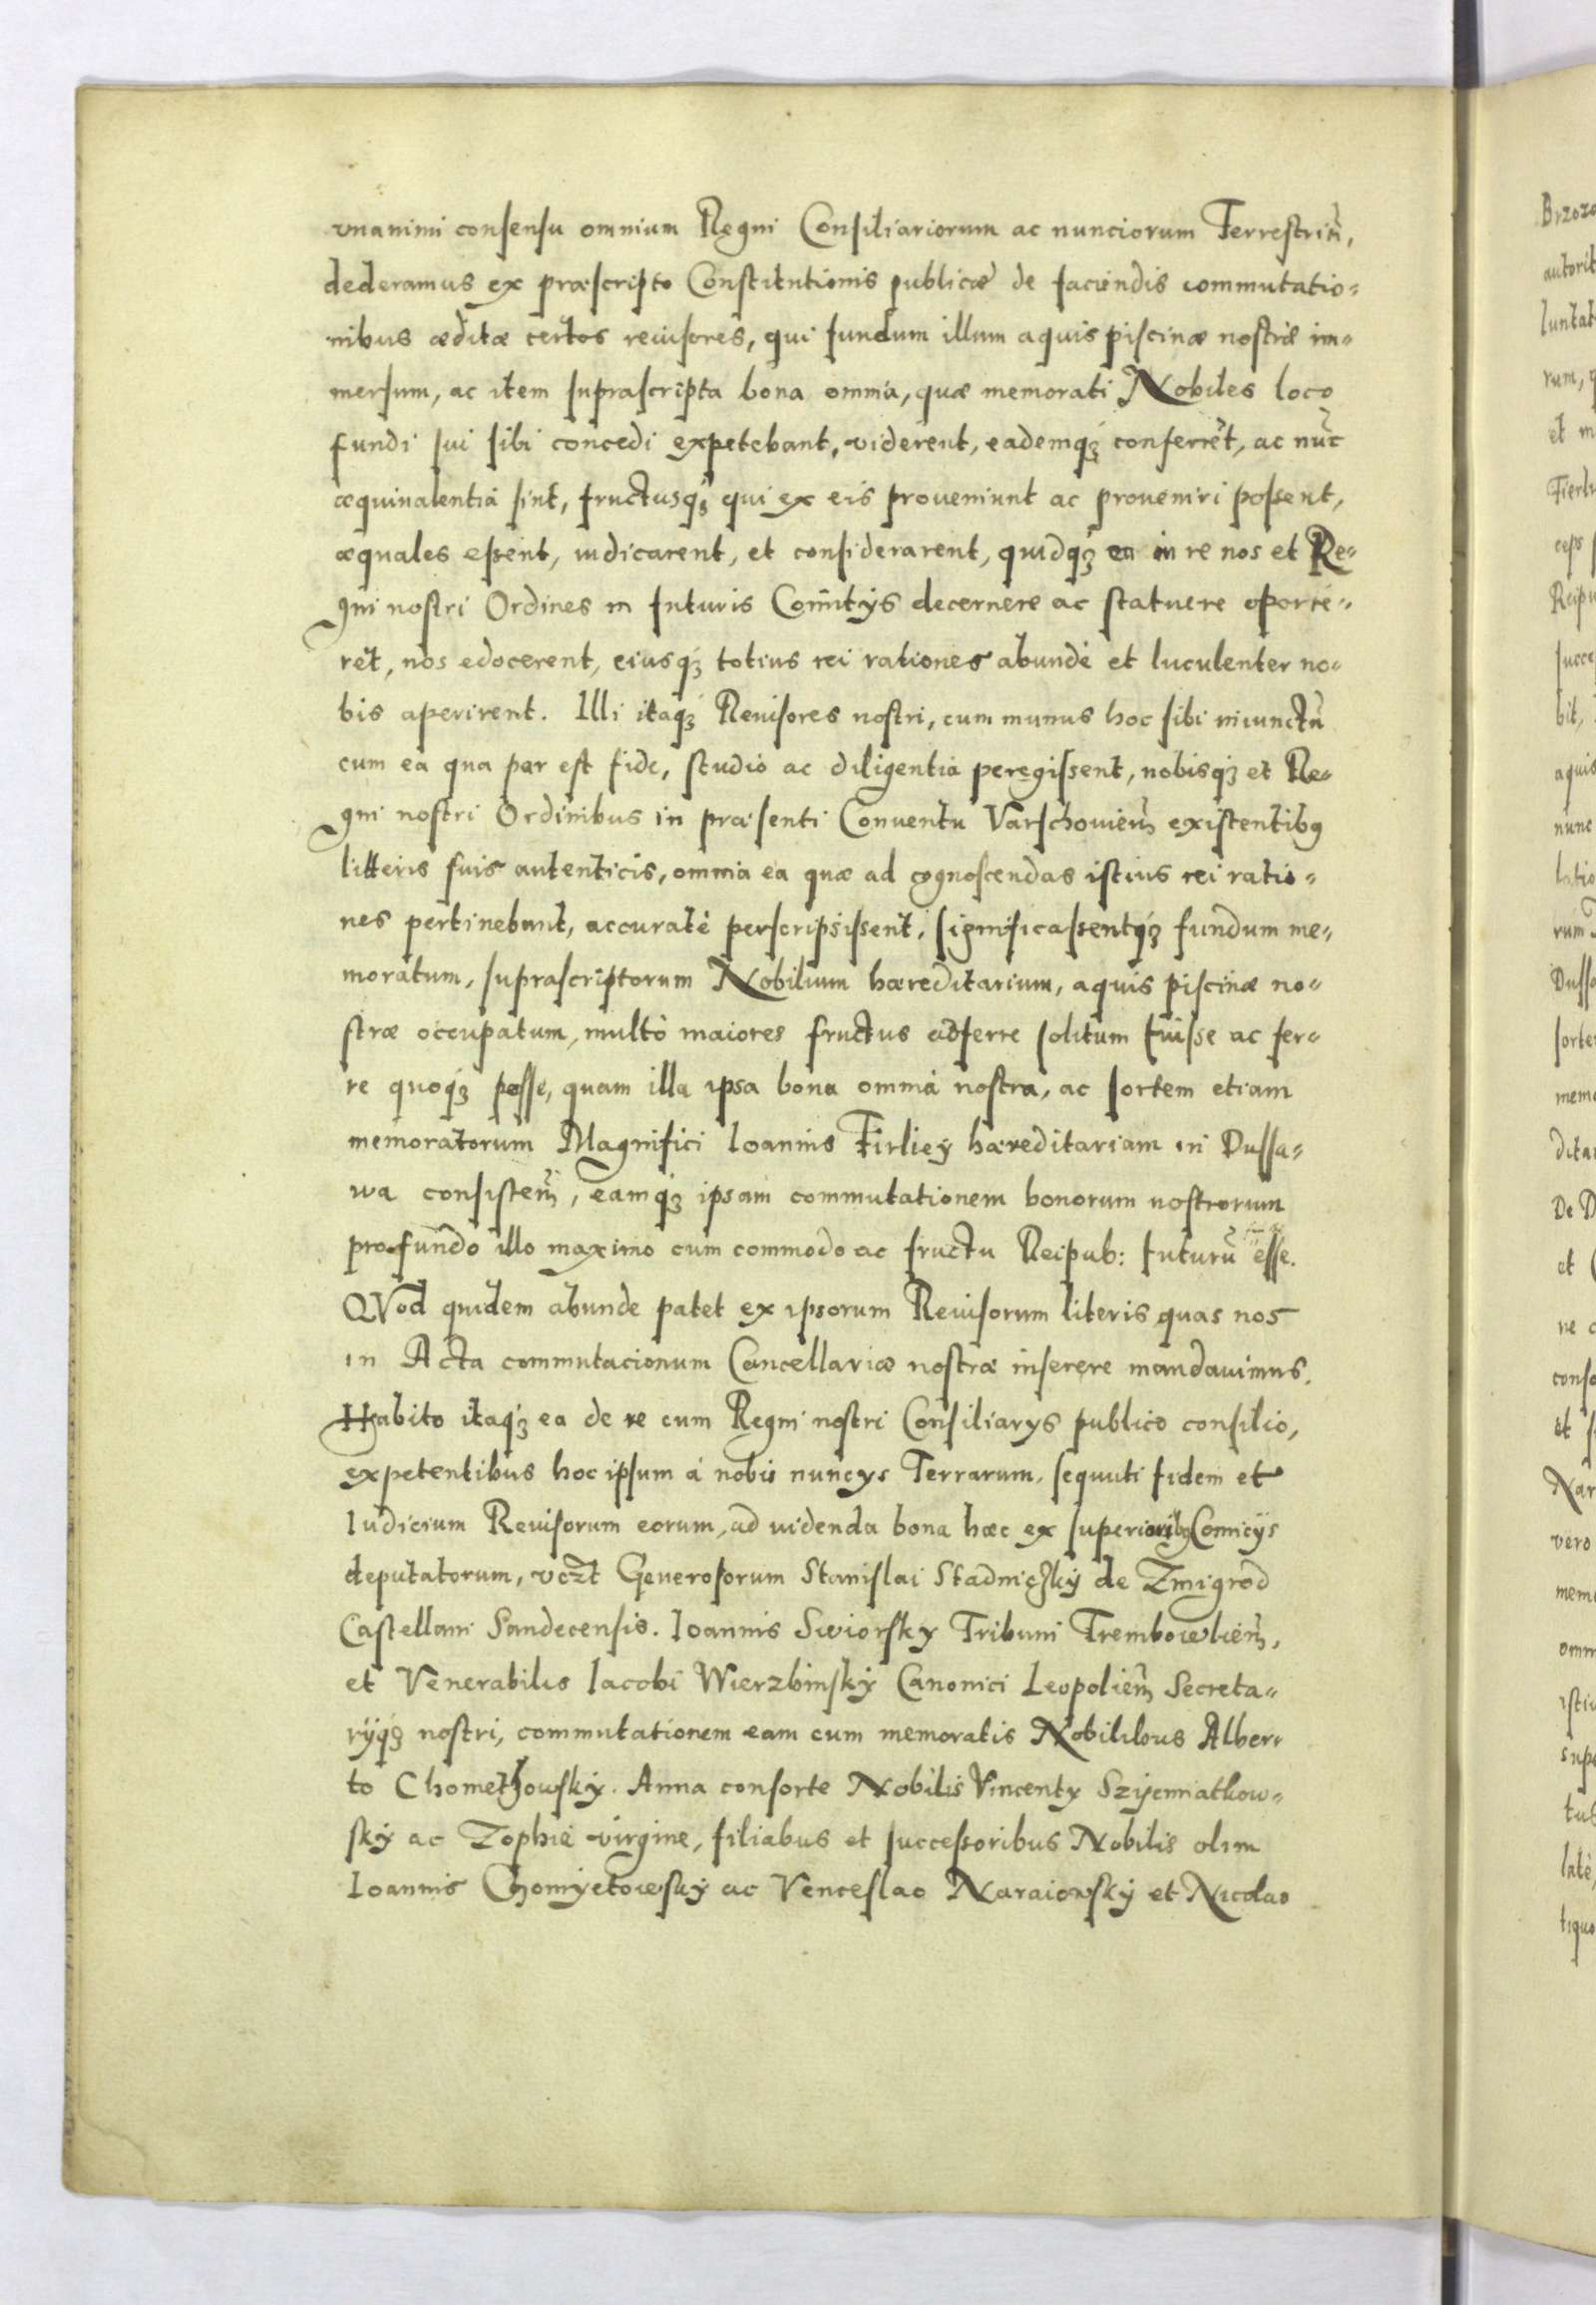 vnanimi consensu omnium Regni Consiliariorum ac nunciorum Terrestriũ,
dederamus ex præscripto Constitutionis publicæ de faciendis commutatio-
nibus æditæ certos reuisores, qui fundum illum aquis piscinæ nostræ im-
mersum, ac item suprascripta bona omnia, quæ memorati Nobiles loco
fundi sui sibi concedi expetebant, viderent, eademqꝫ conferrẽt, ac nũc
æquiualentia sint, fructusqꝫ qui ex eis proueniunt ac proueniri possent,
æquales essent, iudicarent, et considerarent, quidqꝫ ea in re nos et Re-
gni nostri Ordines in futuris Comitijs decernere ac statuere oporte-
ret, nos edocerent, eiusqꝫ totius rei rationes abundè et luculenter no-
bis aperirent. Illi itaqꝫ Reuisores nostri, cum munus hoc sibi iniunctũ
cum ea qua par est fide, studio ac diligentia peregissent, nobisqꝫ et Re-
gni nostri Ordinibus in præsenti Conuentu Varschouień existentibꝰ
litteris suis autenticis, omnia ea quæ ad cognoscendas istius rei ratio-
nes pertinebant, accuratè perscripsissent, significassentqꝫ fundum me-
moratum, suprascriptorum Nobilium hæreditarium, aquis piscinæ no-
stræ occupatum, multò maiores fructus adferre solitum fuisse ac fer-
re quoqꝫ posse, quam illa ipsa bona omnia nostra, ac sortem etiam
memoratorum Magnifici Ioannis Firliey hæreditariam in Dussa-
wa consisteñ, eamqꝫ ipsam commutationem bonorum nostrorum
pro fundo illo maximo cum commodo ac fructu Reipub: futurũ esse.
QVod quidem abunde patet ex ipsorum Reuisorum literis quas nos
in Acta commutacionum Cancellariæ nostræ inserere mandauimus.
Habito itaqꝫ ea de re cum Regni nostri Consiliarijs publico consilio,
expetentibus hoc ipsum à nobis nuncys Terrarum, sequuti fidem et
Iudicium Reuisorum eorum, ad videnda bona hæc ex superioribꝰ Comicijs
deputatorum, vczt Generosorum Stanislai Stadniczky de Zmigrod
Castellani Sandecensis. Ioannis Swiorsky Tribuni Trembowlień,
et Venerabilis Iacobi Wierzbinsky Canonici Leopolień Secreta-
rijqꝫ nostri, commutationem eam cum memoratis Nobilibus Alber-
to Chomethowsky. Anna consorte Nobilis Vincenty Szyemiatkow-
sky ac Zophia virgine, filiabus et successoribus Nobilis olim
Ioannis Chomyetowsky ac Venceslao Naraiowsky et Nicolao
Brzozo
autorit
luntat
rum, q
et m
Fierlu
ceps
Reipu
succe
bit,
aquis
nunc
latio
rum
Dussa
sorte
memo
ditar
De D
et
re c
conso
et
Nar
vero
memo
omni
istiu
supe
tus
latè,
tiquo